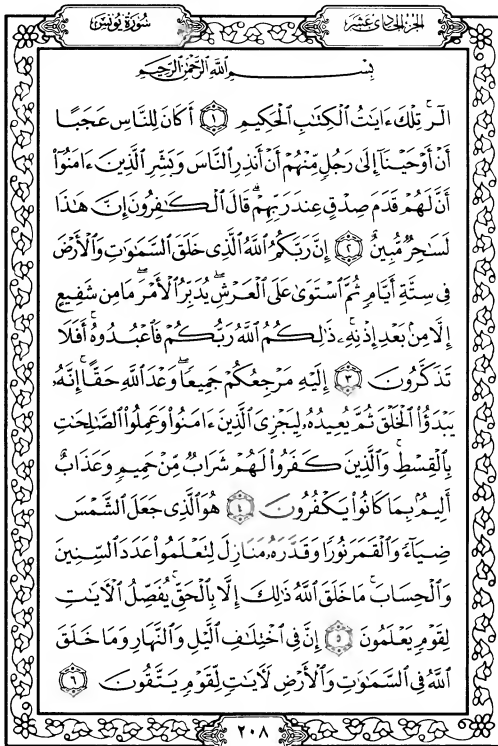 الجزء الحادى عشر
سورة يونس
بِسْمِ اللَّهِ الرَّحْمَٰنِ الرَّحِيمِ
الٓرۚ تِلْكَ ءَايَٰتُ ٱلْكِتَٰبِ ٱلْحَكِيمِ ١ أَكَانَ لِلنَّاسِ عَجَبًا
أَنْ أَوْحَيْنَآ إِلَىٰ رَجُلٍ مِّنْهُمْ أَنْ أَنذِرِ ٱلنَّاسَ وَبَشِّرِ ٱلَّذِينَ ءَامَنُوٓا۟
أَنَّ لَهُمْ قَدَمَ صِدْقٍ عِندَ رَبِّهِمْۗ قَالَ ٱلْكَٰفِرُونَ إِنَّ هَٰذَا
لَسَٰحِرٌ مُّبِينٌ ٢ إِنَّ رَبَّكُمُ ٱللَّهُ ٱلَّذِى خَلَقَ ٱلسَّمَٰوَٰتِ وَٱلْأَرْضَ
فِى سِتَّةِ أَيَّامٍ ثُمَّ ٱسْتَوَىٰ عَلَى ٱلْعَرْشِۖ يُدَبِّرُ ٱلْأَمْرَۖ مَا مِن شَفِيعٍ
إِلَّا مِنۢ بَعْدِ إِذْنِهِۦۚ ذَٰلِكُمُ ٱللَّهُ رَبُّكُمْ فَٱعْبُدُوهُۚ أَفَلَا
تَذَكَّرُونَ ٣ إِلَيْهِ مَرْجِعُكُمْ جَمِيعًاۖ وَعْدَ ٱللَّهِ حَقًّاۚ إِنَّهُۥ
يَبْدَؤُا۟ ٱلْخَلْقَ ثُمَّ يُعِيدُهُۥ لِيَجْزِىَ ٱلَّذِينَ ءَامَنُوا۟ وَعَمِلُوا۟ ٱلصَّٰلِحَٰتِ
بِٱلْقِسْطِۚ وَٱلَّذِينَ كَفَرُوا۟ لَهُمْ شَرَابٌ مِّنْ حَمِيمٍ وَعَذَابٌ
أَلِيمٌۢ بِمَا كَانُوا۟ يَكْفُرُونَ ٤ هُوَ ٱلَّذِى جَعَلَ ٱلشَّمْسَ
ضِيَآءً وَٱلْقَمَرَ نُورًا وَقَدَّرَهُۥ مَنَازِلَ لِتَعْلَمُوا۟ عَدَدَ ٱلسِّنِينَ
وَٱلْحِسَابَۚ مَا خَلَقَ ٱللَّهُ ذَٰلِكَ إِلَّا بِٱلْحَقِّۚ يُفَصِّلُ ٱلْءَايَٰتِ
لِقَوْمٍ يَعْلَمُونَ ٥ إِنَّ فِى ٱخْتِلَٰفِ ٱلَّيْلِ وَٱلنَّهَارِ وَمَا خَلَقَ
ٱللَّهُ فِى ٱلسَّمَٰوَٰتِ وَٱلْأَرْضِ لَءَايَٰتٍ لِّقَوْمٍ يَتَّقُونَ ٦
٢٠٨